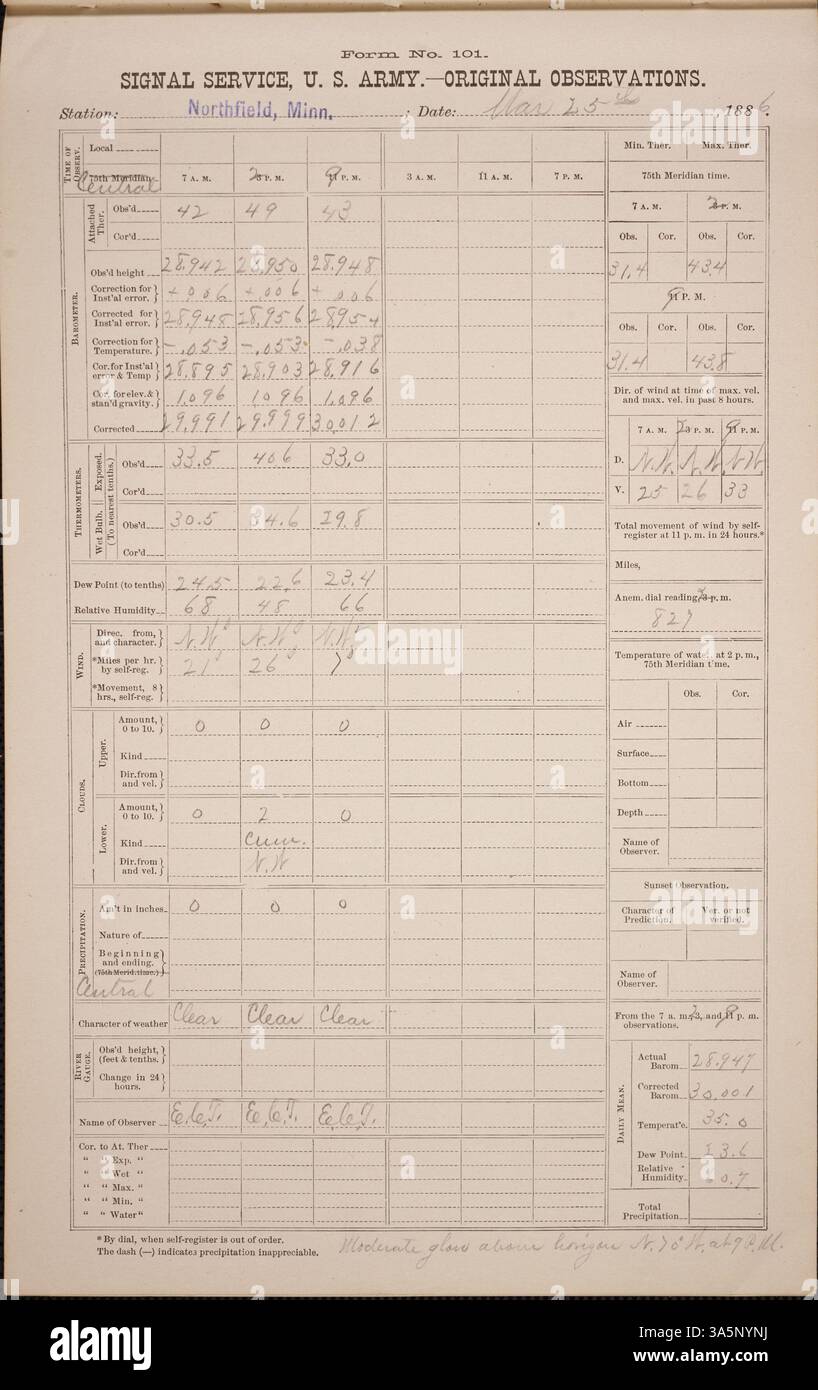 Form No. 101.
SIGNAL SERVICE, U. S. ARMY.—ORIGINAL OBSERVATIONS.
Station: Northfield, Minn. ; Date: Mar 25th, 1886.
TIME OF OBSERV.
Local
75th Meridian 7 A. M. 2 3 P. M. 9 11 P. M. 3 A. M. 11 A. M. 7 P. M.
Central
BAROMETER.
Attached Ther.
Obs'd 42 49 43
Cor'd
Obs'd height 28.942 28.950 28.948
Correction for Inst'al error. +.006 +.006 +.006
Corrected for Inst'al error. 28.948 28.956 28.954
Correction for Temperature. -.053 -.053 -.038
Cor. for Inst'al error & Temp 28.895 28.903 28.916
Cor. for elev. & stan'd gravity. 1.096 1.096 1.096
Corrected 29.991 29.999 30.012
THERMOMETERS.
Exposed. (To nearest tenths.)
Obs'd 33.5 40.6 33.0
Cor'd
Wet Bulb.
Obs'd 30.5 34.6 29.8
Cor'd
Dew Point (to tenths) 24.5 22.6 23.4
Relative Humidity 68 48 66
WIND.
Direc. from, and character. N.W. N.W. N.W.
*Miles per hr. by self-reg. 21 26 7
*Movement, 8 hrs., self-reg.
CLOUDS.
Upper.
Amount, 0 to 10. 0 0 0
Kind
Dir. from and vel.
Lower.
Amount, 0 to 10. 0 2 0
Kind Cum.
Dir. from and vel. N.W
PRECIPITATION.
Am't in inches 0 0 0
Nature of
Beginning and ending. (75th Merid. time.)
Central
Character of weather Clear Clear Clear
RIVER GAUGE.
Obs'd height, (feet & tenths.)
Change in 24 hours.
Name of Observer E.C.T. E.C.T. E.C.T.
Cor. to At. Ther
“ “ Exp. “
“ “ Wet “
“ “ Max. “
“ “ Min. “
“ “ Water “
Min. Ther. Max. Ther.
75th Meridian time.
7 A. M. 2 3 P. M.
Obs. Cor. Obs. Cor.
31.4 43.4
9 11 P. M.
Obs. Cor. Obs. Cor.
31.4 43.8
Dir. of wind at time of max. vel. and max. vel. in past 8 hours.
7 A. M. 2 3 P. M. 9 11 P. M.
D. N.W. N.W. N.W.
V. 25 26 33
Total movement of wind by self-register at 11 p. m. in 24 hours.*
Miles,
Anem. dial reading, 2 3 p. m.
827
Temperature of water at 2 p. m., 75th Meridian time.
Obs. Cor.
Air
Surface
Bottom
Depth
Name of Observer.
Sunset Observation.
Character of Prediction. Ver. or not verified.
Name of Observer.
From the 7 a. m., 2 3, and 9 11 p. m. observations.
DAILY MEAN.
Actual Barom. 28.947
Corrected Barom. 30.001
Temperat'e. 35.0
Dew Point. 23.6
Relative Humidity
Total Precipitation
*By dial, when self-register is out of order.
The dash (—) indicates precipitation inappreciable.
Moderate glow above horizon N. 70° W. at 9 P.M.
alamy
a
alamy
Image ID: 3A5NYNJ
www.alamy.com